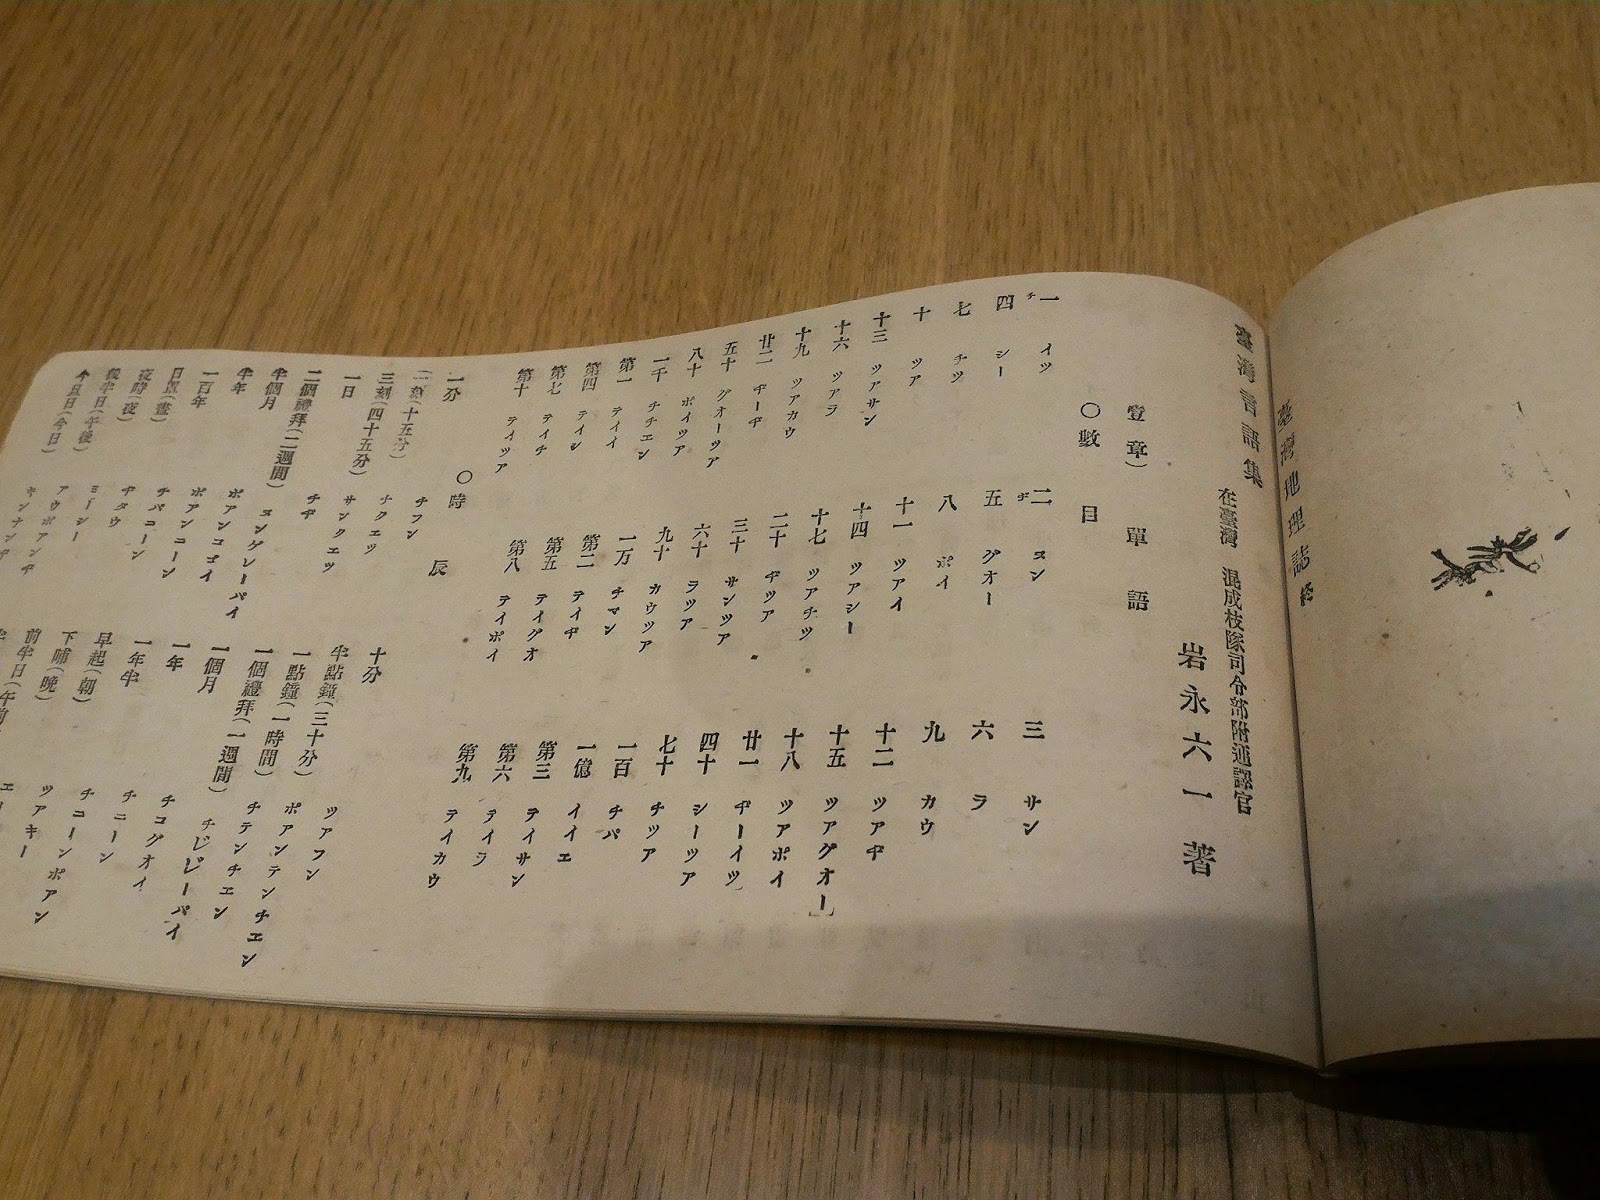 臺灣地理誌終
臺灣言語集
在臺灣 混成枝隊司令部附通譯官
岩永六一著
壹章) 單語
〇數目
一 イツ チ 二 ヌン ヂ 三 サン
四 シー 五 グオー 六 ラ
七 チツ 八 ポイ 九 カウ
十 ツア 十一 ツアイ 十二 ツアヂ
十三 ツアサン 十四 ツアシー 十五 ツアグオー」
十六 ツアラ 十七 ツアチツ 十八 ツアポイ
十九 ツアカウ 二十 ヂツア 廿一 ヂーイツ
廿二 ヂーヂ 三十 サンツア 四十 シーツア
五十 グオーツア 六十 ラツア 七十 チツア
八十 ポイツア 九十 カウツア 一百 チパ
一千 チチエン 一万 チマン 一億 イイエ
第一 テイイ 第二 テイヂ 第三 テイサン
第四 テイシ 第五 テイグオ 第六 テイラ
第七 テイチ 第八 テイポイ 第九 テイカウ
第十 テイツア
〇時辰
一分 チフン 十分 ツアフン
一刻(十五分) チクエツ 半點鐘(三十分) ポアンテンチエン
三刻(四十五分) サンクエツ 一點鐘(一時間) チテンチエン
一日 チヂ 一個禮拜(一週間) チレーパイ
二個禮拜(二週間) ヌンゲレーパイ 一個月 チコグオイ
半個月 ポアンコゴイ 一年 チニーン
半年 ポアンニーン 一年半 チニーンポアン
一百年 チパニーン 早起(朝) ツアキー
日罩(晝) ヂタウ 下晡(晩)
夜時(夜) ミーシー 前半日(午前
後半日(午後) アウポアンヂ
今旦日(今日) キンナンヂ